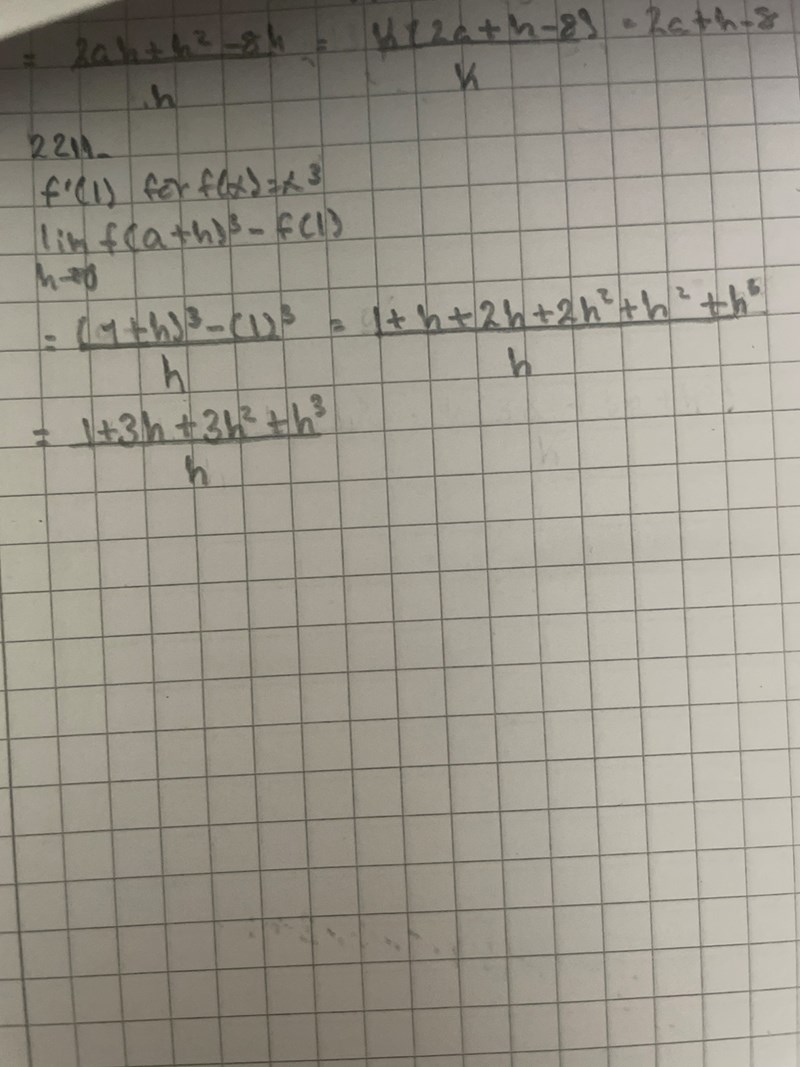 = 2ah+h²-8h / h = h(2a+h-8) / h = 2a+h-8
2211.
f'(1) för f(x)=x³
lim f(a+h)³ - f(1)
h→0
= (1+h)³-(1)³ / h = 1+h+2h+2h²+h²+h³ / h
= 1+3h+3h²+h³ / h